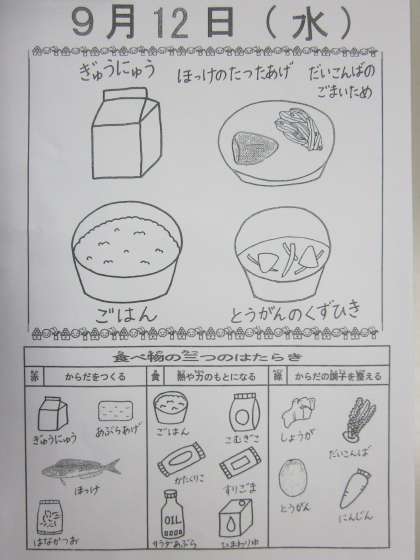 9月12日（水）
ぎゅうにゅう
ほっけのたつたあげ
だいこんばの
ごまいため
ごはん
とうがんのくずひき
食べ物の三つのはたらき
赤 からだをつくる
黄 熱や力のもとになる
緑 からだの調子を整える
ぎゅうにゅう
あぶらあげ
ほっけ
はなかつお
ごはん
こむぎこ
かたくりこ
すりごま
OIL
サラダあぶら
ひまわりゆ
しょうが
だいこんば
とうがん
にんじん